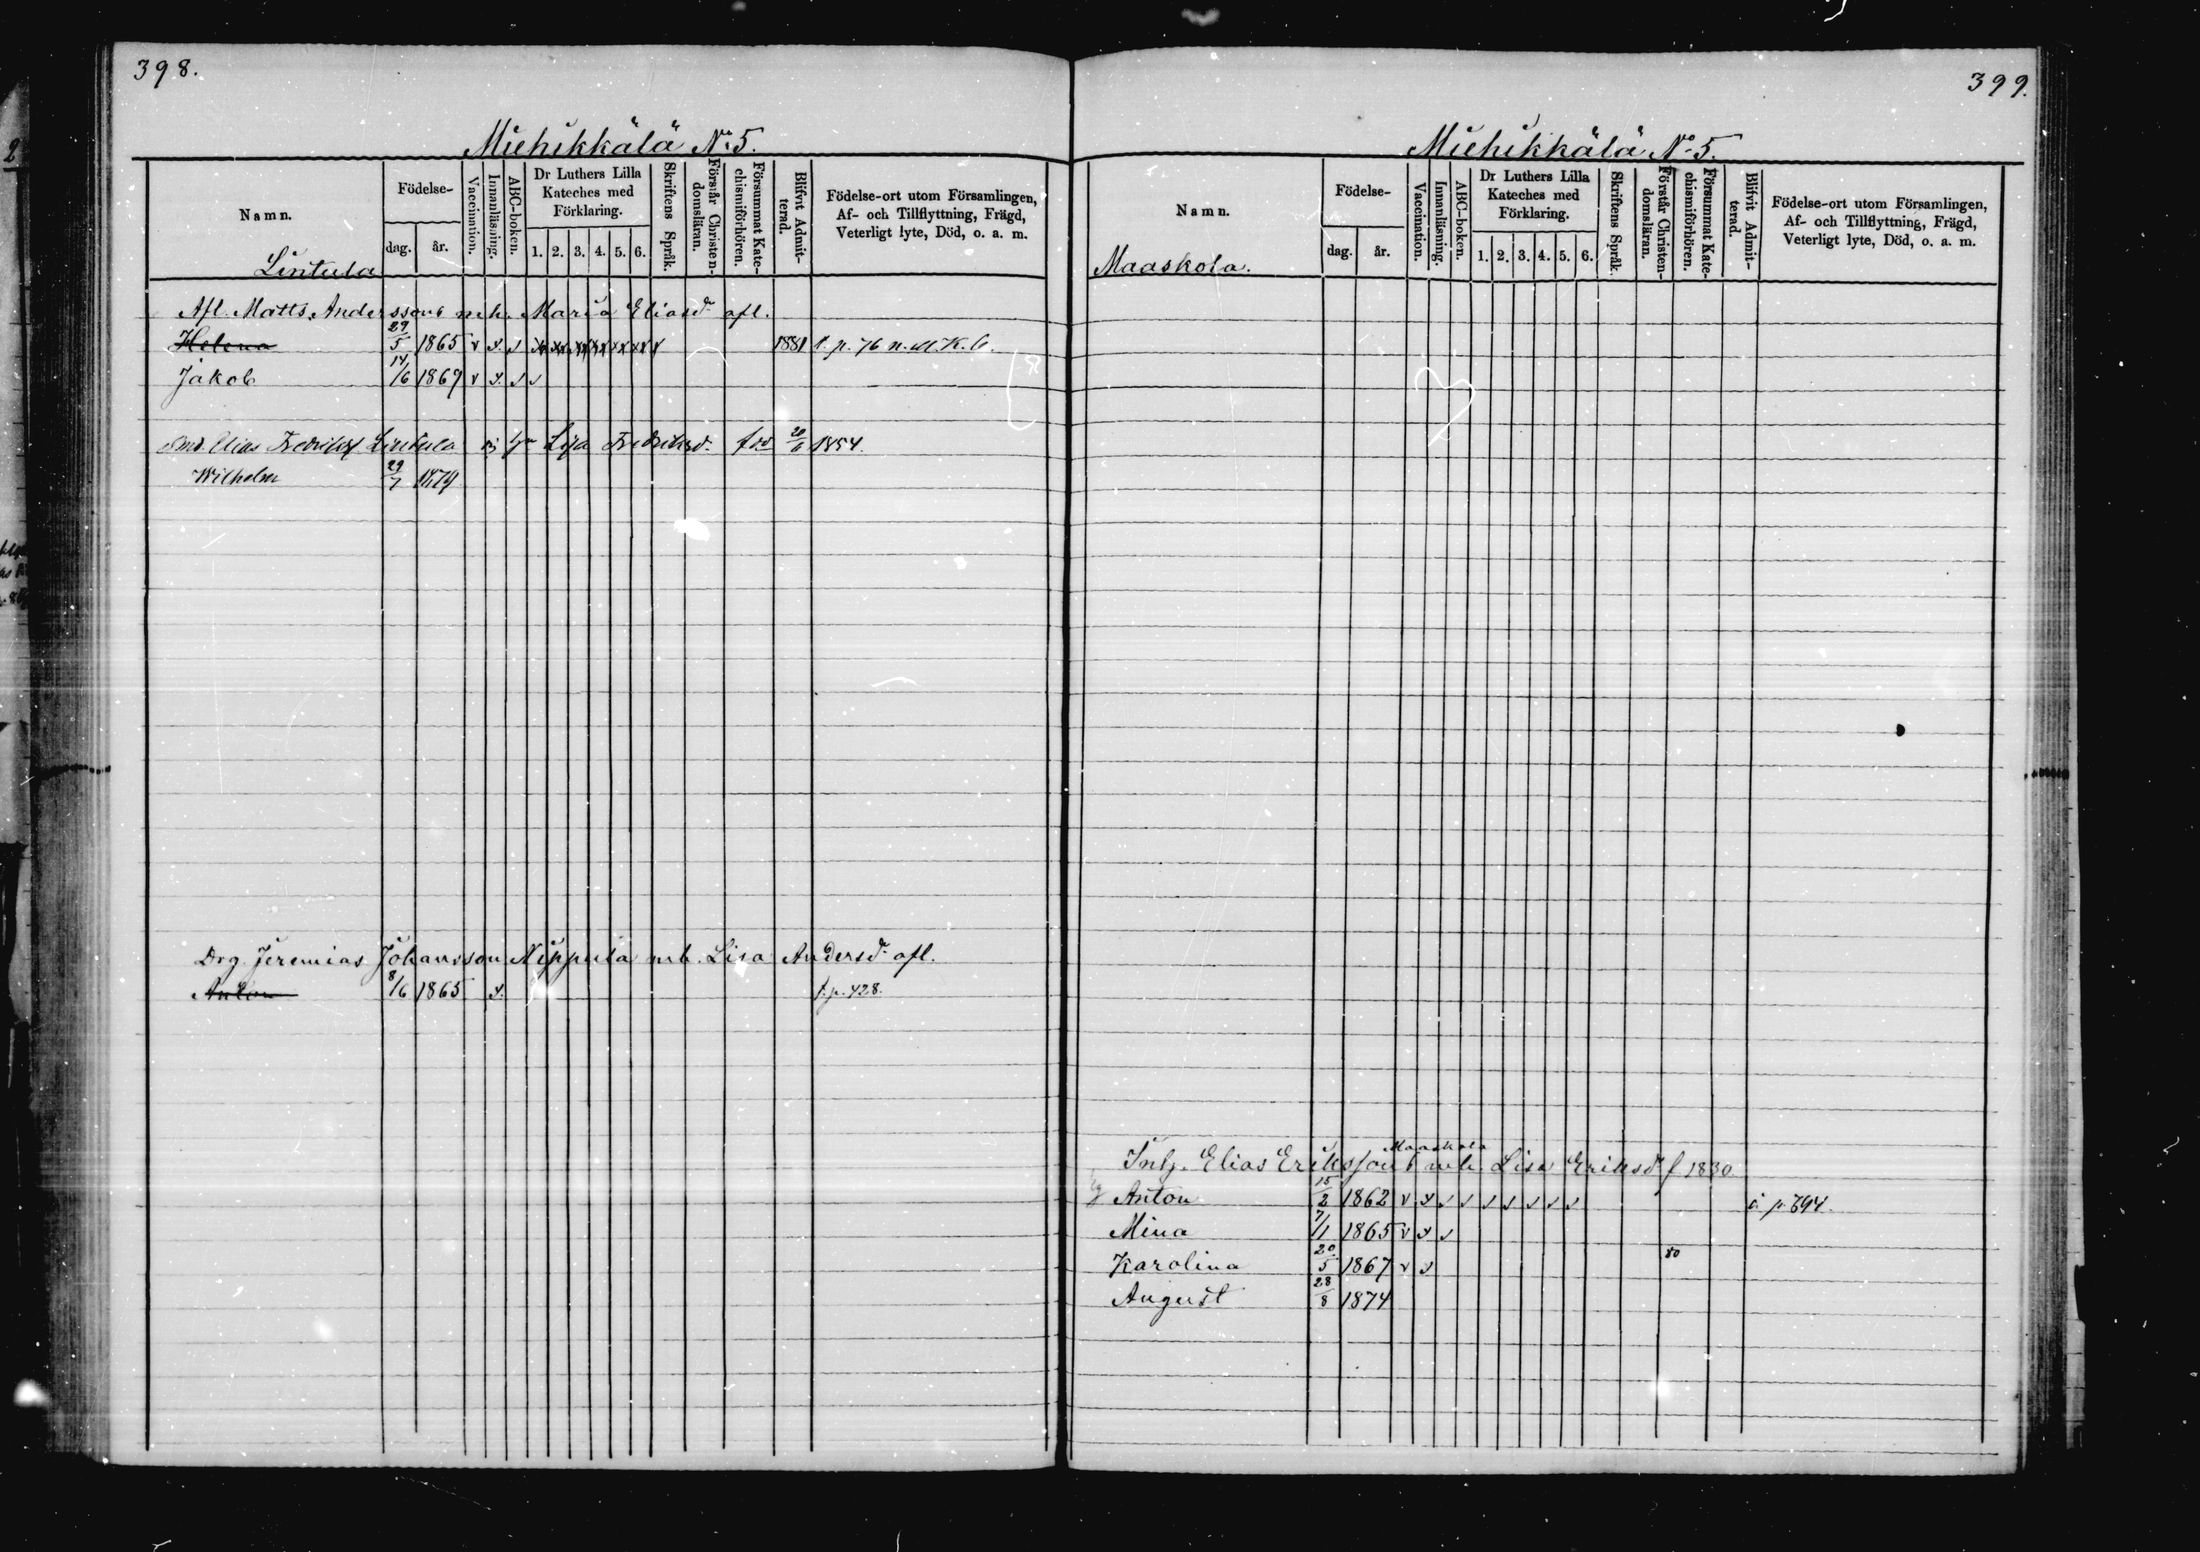 398.
Miehikkälä No 5.
Namn.
Födelse-
dag.
år.
Vaccination.
Innanläsning.
ABC-boken.
Dr Luthers Lilla Kateches med Förklaring.
1. 2. 3. 4. 5. 6.
Skriftens Språk.
Förstår Christendomsläran.
Försummat Katechismiförhören.
Blifvit Admitterad.
Födelse-ort utom Församlingen, Af- och Tillflyttning, Frägd, Veterligt lyte, Död, o. a. m.
Lintula
Afl. Matts Anderssons m.h. Maria Eliasdr afl.
Helena 29/5 1865 v x. s 1881 t. p. 76 n. M. K. b.
Jakob 14/6 1869 v x. s s
Elias Fredriksf Lintula Lisa Fredriksdr 20/6 1854.
Wilhelm 29/7 1879
Drg. Jeremias Johansson Nippula m.h. Lisa Andersdr afl.
Anton 8/6 1865 x. t. p. 428.
399.
Miehikkälä No 5.
Namn.
Födelse-
dag.
år.
Vaccination.
Innanläsning.
ABC-boken.
Dr Luthers Lilla Kateches med Förklaring.
1. 2. 3. 4. 5. 6.
Skriftens Språk.
Förstår Christendomsläran.
Försummat Katechismiförhören.
Blifvit Admitterad.
Födelse-ort utom Församlingen, Af- och Tillflyttning, Frägd, Veterligt lyte, Död, o. a. m.
Maaskola.
Maaskola
Inh. Elias Eriksson m.h. Lisa Eriksdr f 1830
Anton 15/2 1862 v x s s s s s s s p. 694.
Mina 7/1 1865 v x s
Karolina 20/5 1867 v s 80
August 28/8 1874